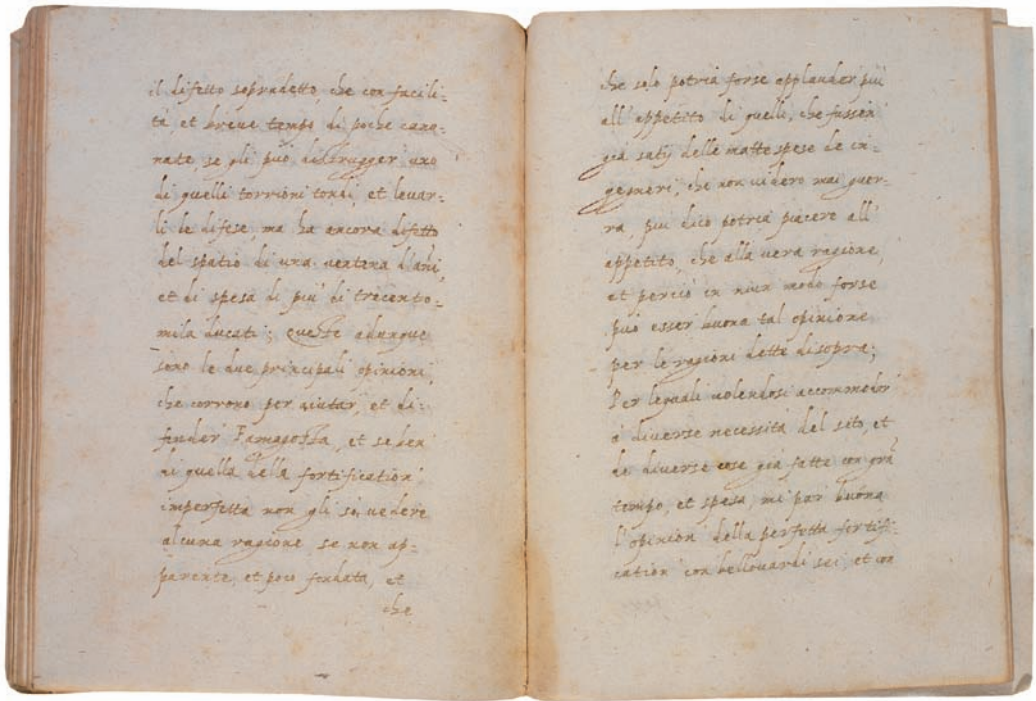 il difetto sopradetto, che con facili=
tà, et breve tempo di poche cano=
nate, se gli può distrugger uno
di quelli torrioni tondi, et levar=
li le difese, ma ha ancora difetto
del spatio di una ventena d'anni,
et di spesa di più di trecento=
mila ducati; queste adunque
sono le due principali opinioni,
che corrono per aiutar, et di=
fender Famagosta, et se ben
di quella della fortification
imperfetta non gli sò vedere
alcuna ragione se non ap=
parente, et poco fondata, et
che
che solo potria forse applauder più
all'appetito di quelli, che fusseri
già satij delle matte spese de in=
gegneri, che non videro mai guer=
ra, più dico potria piacere all'
appetito, che alla vera ragione,
et perciò in niun modo forse
può esser buona tal opinione
per le ragioni dette di sopra;
Per le quali volendosi accommodar
à diverse necessità del sito, et
de diverse cose già fatte con grã
tempo, et spesa, mi par buona
l'opinion della perfetta fortifi=
cation con bellouardi sei, et con